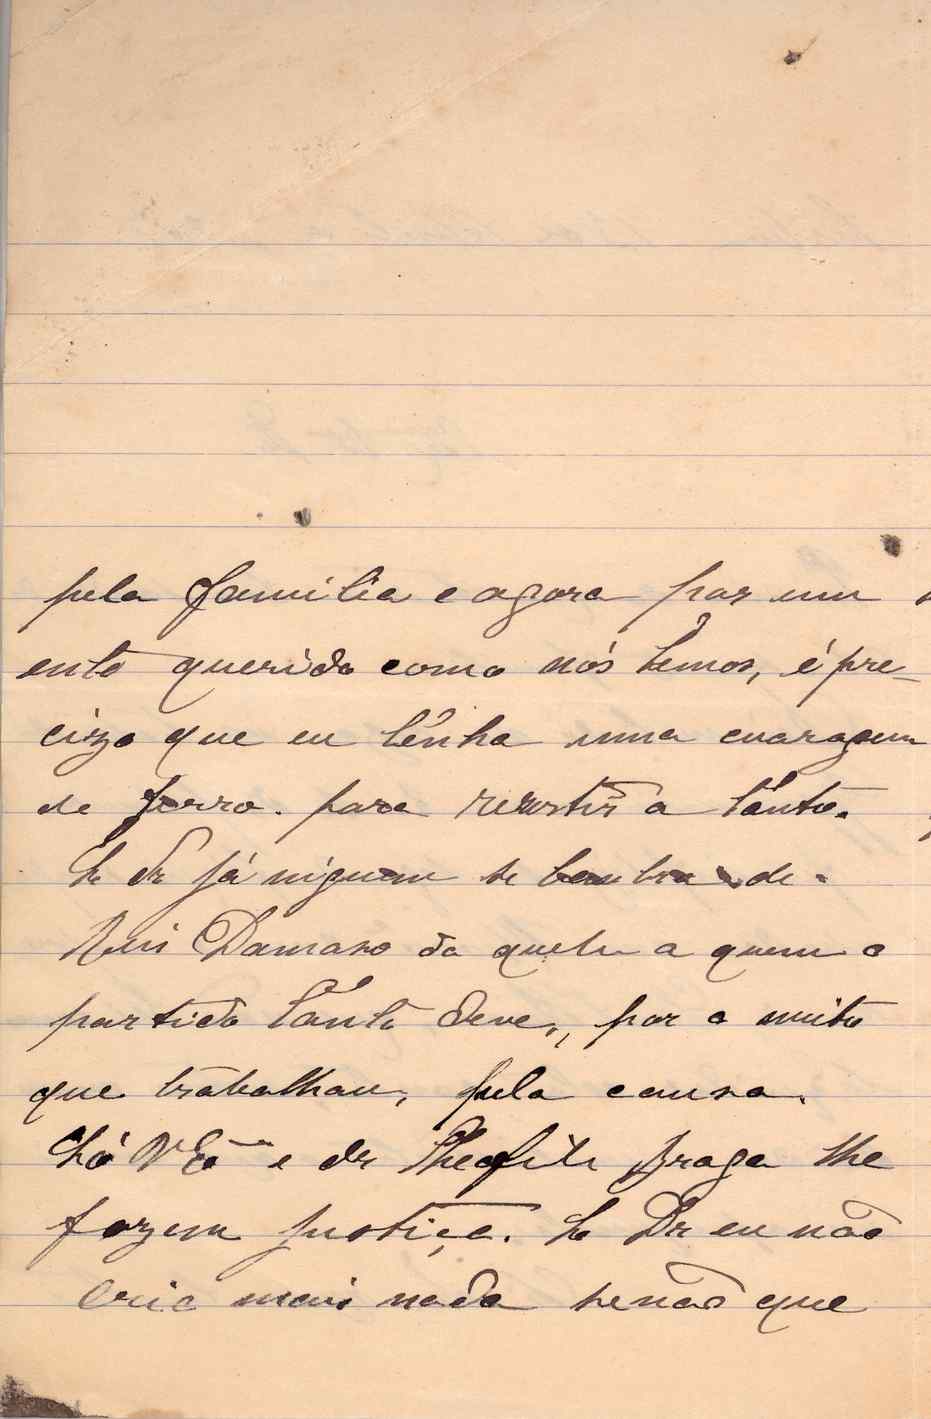 pela familia e agora por um
ente querido como nós temos, é pre-
cizo que eu tênha uma curagem
de ferro. para rezestir a tânto.
Sr dr já niguem se lembra de.
Rui Damazo da quele a quem o
partido tânto deve,, por o muito
que trabalhou, pela causa.
Só V Exª e dr Theofilo Braga lhe
fazem justiça. Sr Dr eu não
cria mais nada senão que